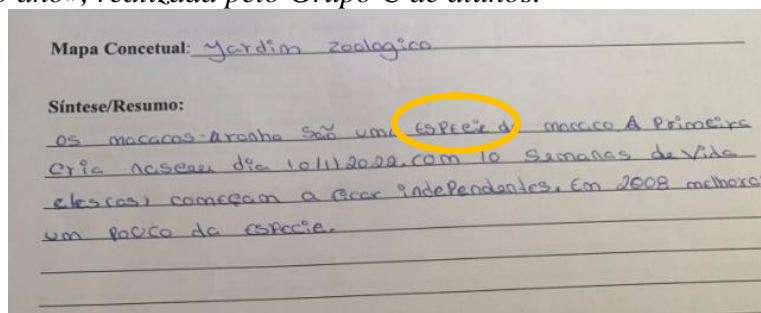 o ano», realizada pelo Grupo C de alunos.
Mapa Concetual: Jardim zoologico
Síntese/Resumo:
os macacos-aranha são uma espécie de macaco. A Primeira
cria nasceu dia 10/1/2022. com 10 Semanas de Vida
eles(as) começam a ficar independentes. Em 2008 melhora
um pouco da espécie.